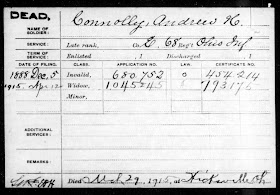 DEAD,
NAME OF SOLDIER: Connolly, Andrew H.
SERVICE: Late rank, Co. E, 68 Reg't Ohio Inf
TERM OF SERVICE: Enlisted 1 Discharged 1
DATE OF FILING. CLASS. APPLICATION NO. LAW. CERTIFICATE NO.
1888 Dec. 5 Invalid, 680.752 0 454.214
1915 Widow, 1045 793175
Minor,
ADDITIONAL SERVICES:
REMARKS:
Died 29, 1915, at Hicksville O.